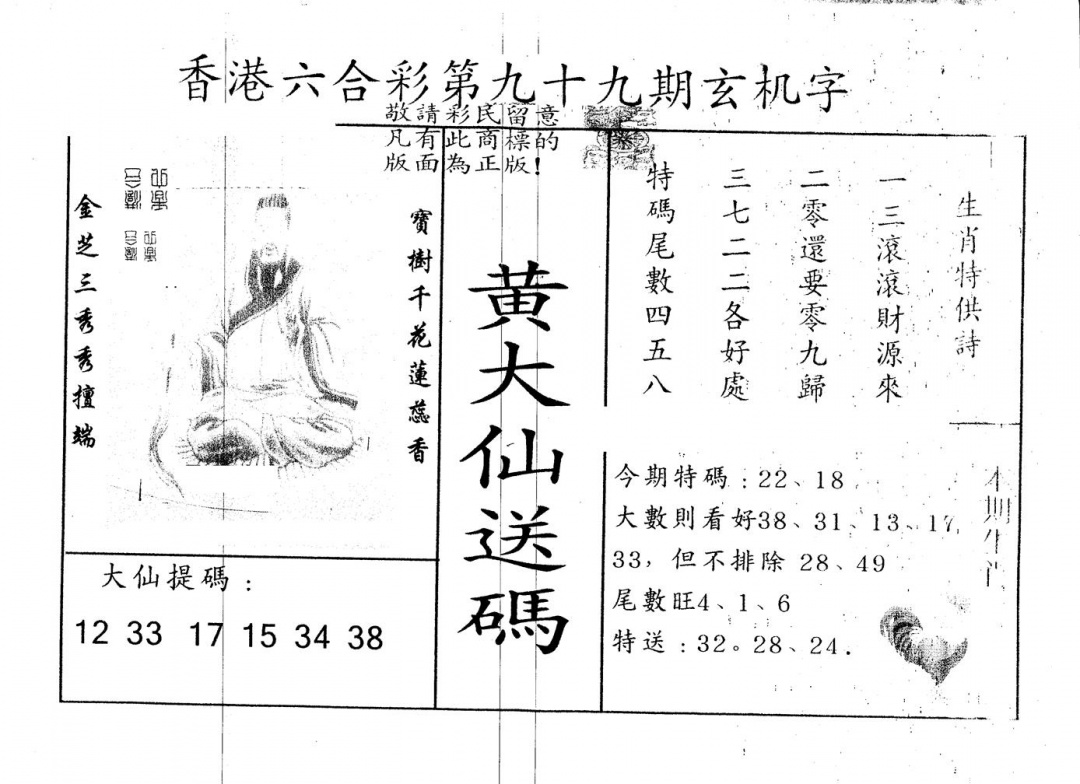 香港六合彩第九十九期玄机字
敬請彩民留意
凡有此商標的
版面為正版!
生肖特供詩
一三滾滾財源來
二零還要零九歸
三七二二各好處
特碼尾數四五八
黃大仙送碼
寶樹千花蓮蕊香
金芝三秀秀擅端
今期特碼:22、18
大數則看好38、31、13、17,
33，但不排除 28、49
尾數旺4、1、6
特送:32。28、24.
本期生肖
大仙提碼:
12 33 17 15 34 38